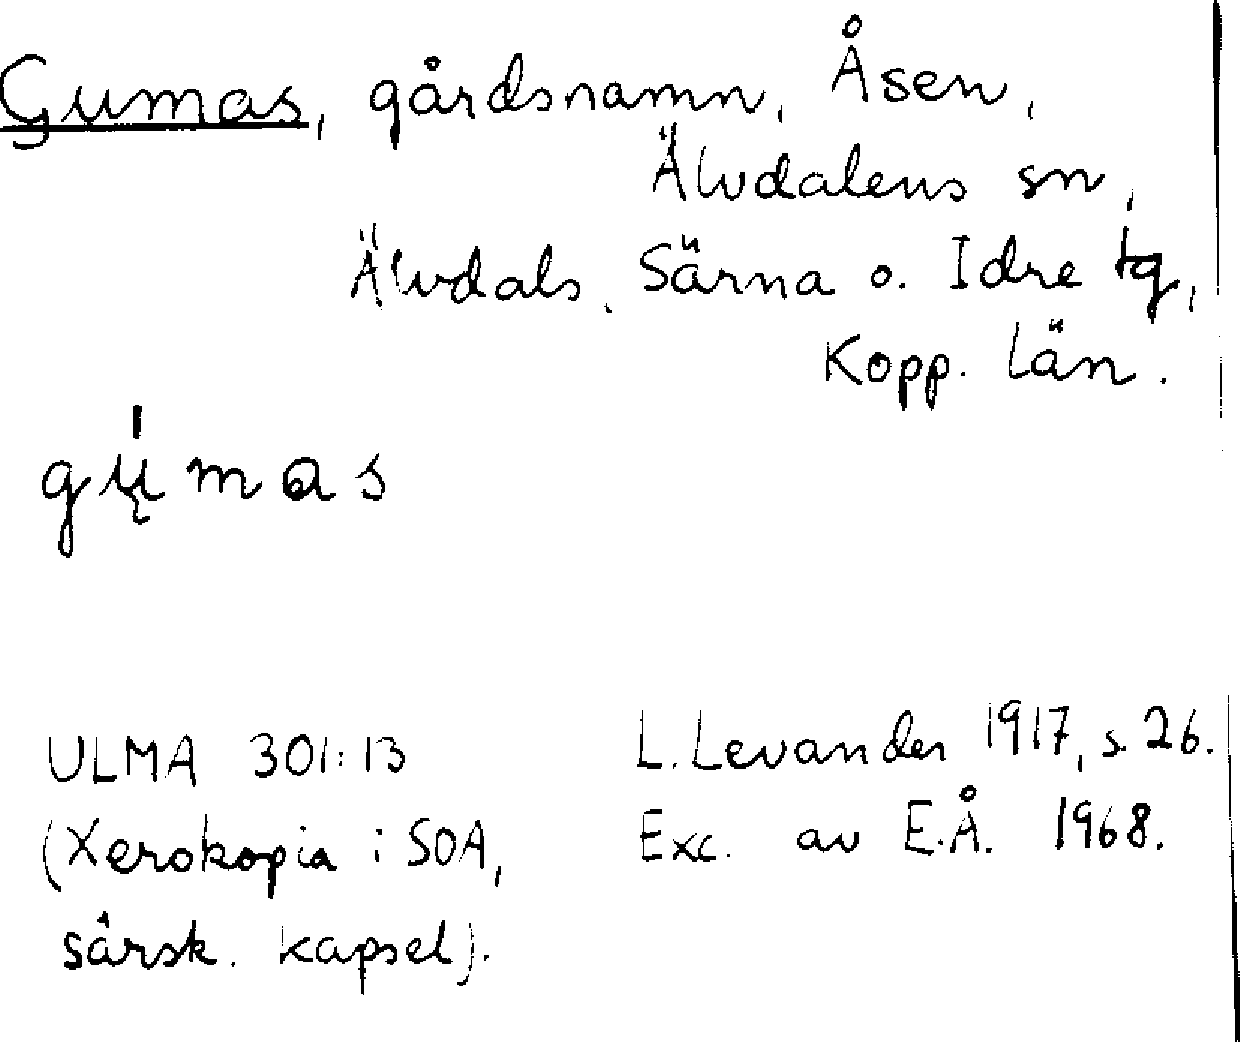 Gumas, gårdsnamn, Åsen,
Älvdalens sn,
Älvdals, Särna o. Idre tg,
Kopp. län.
gų́mas
ULMA 301:13
(Xerokopia i SOA,
särsk. kapsel).
L. Levander 1917, s. 26.
Exc. av E.Å. 1968.